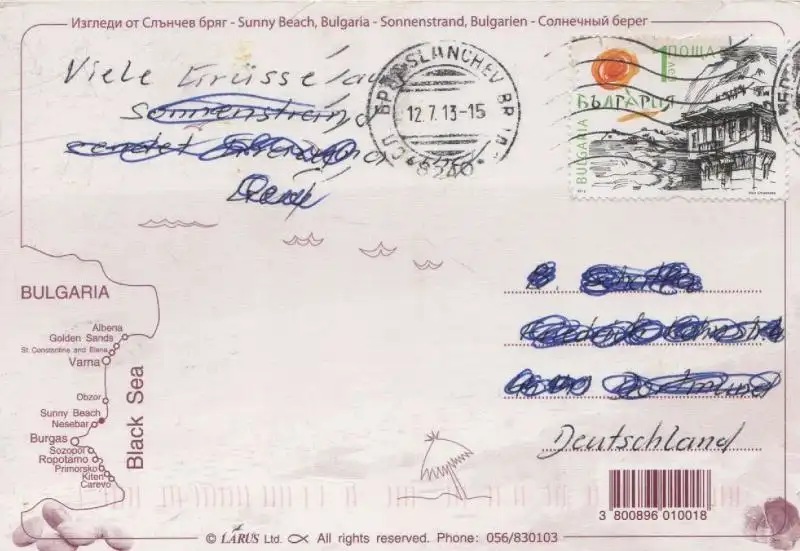 Изгледи от Слънчев бряг - Sunny Beach, Bulgaria - Sonnenstrand, Bulgarien - Солнечный берег
Viele Grüsse
Sonnenstrand
SLANCHEV BR
12.7.13-15
8240
ПОЩА
БЪЛГАРИЯ
BULGARIA
BULGARIA
Albena
Golden Sands
St. Constantine and Elena
Varna
Obzor
Sunny Beach
Nesebar
Burgas
Sozopol
Ropotamo
Primorsko
Kiten
Carevo
Black Sea
Deutschland
3 800896 010018
© LARUS Ltd. All rights reserved. Phone: 056/830103